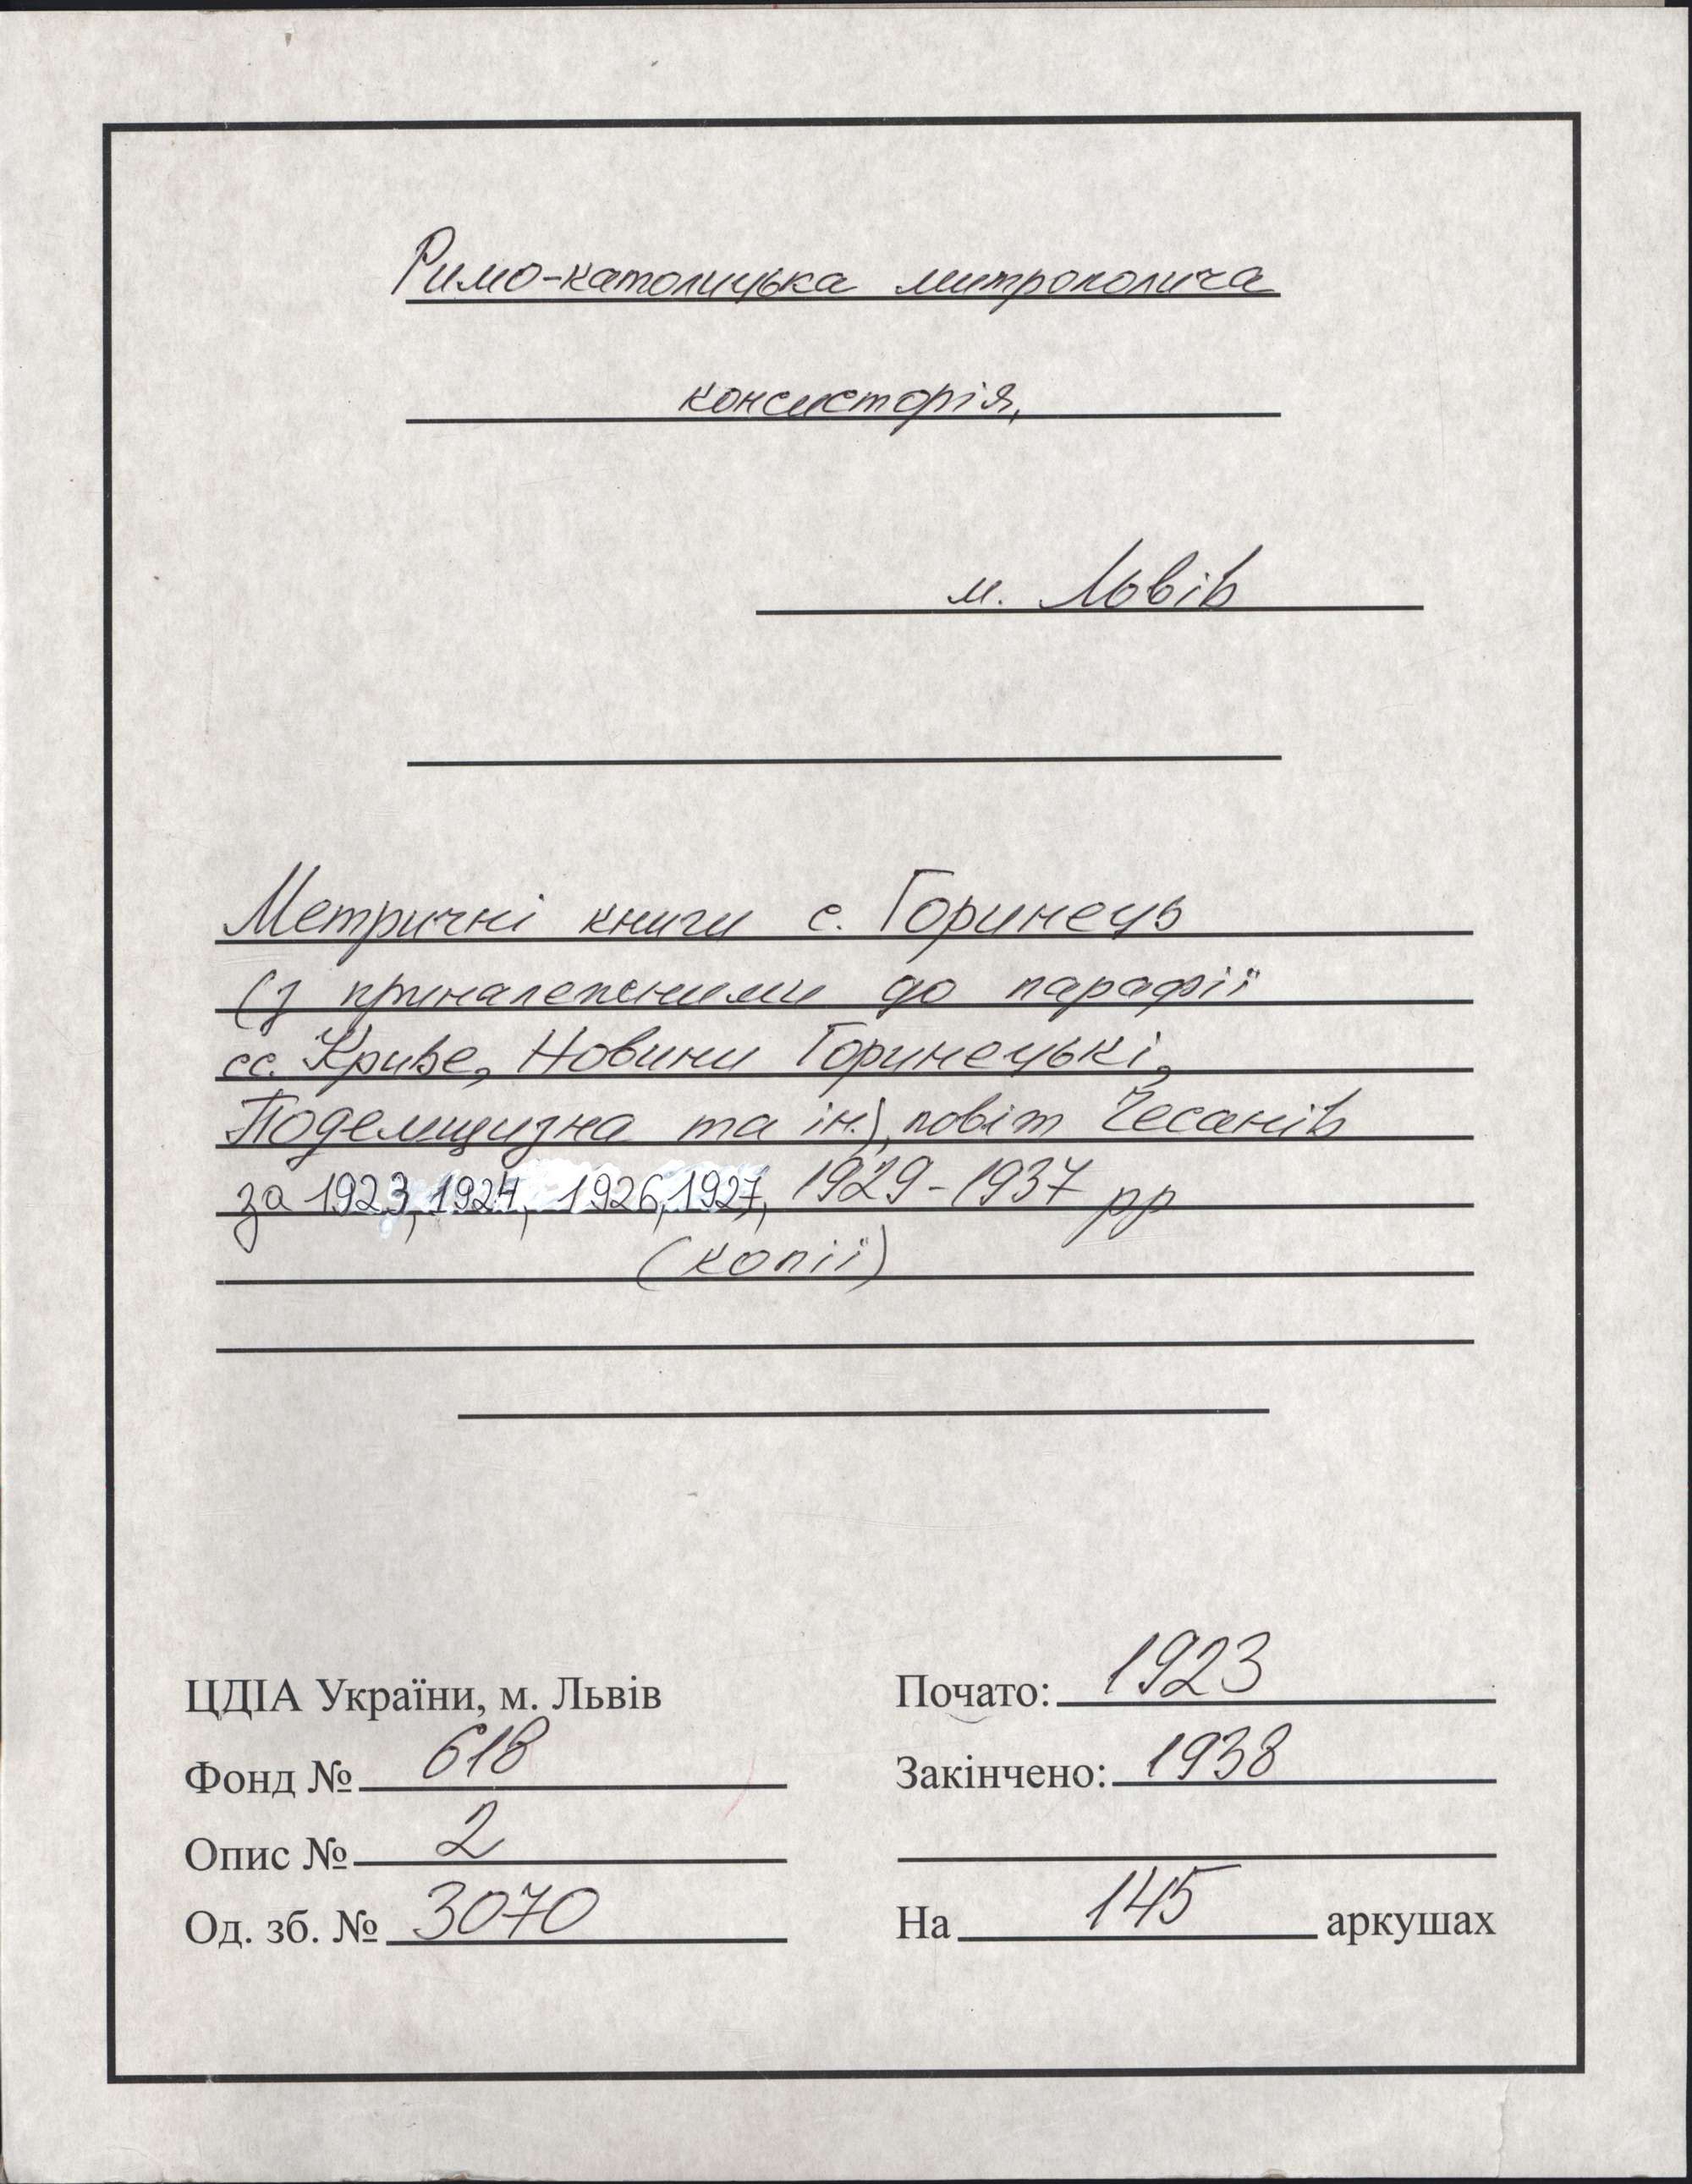 Римо-католицька митрополича
консисторія,
м. Львів
Метричні книги с. Горинець
(з приналежними до парафії
сс. Криве, Новини Горинецькі,
Подемщизна та ін.), повіт Чесанів
за 1923, 1924, 1926, 1927, 1929-1937 рр
(копії)
ЦДІА України, м. Львів
Фонд № 618
Опис № 2
Од. зб. № 3070
Почато: 1923
Закінчено: 1938
На 145 аркушах